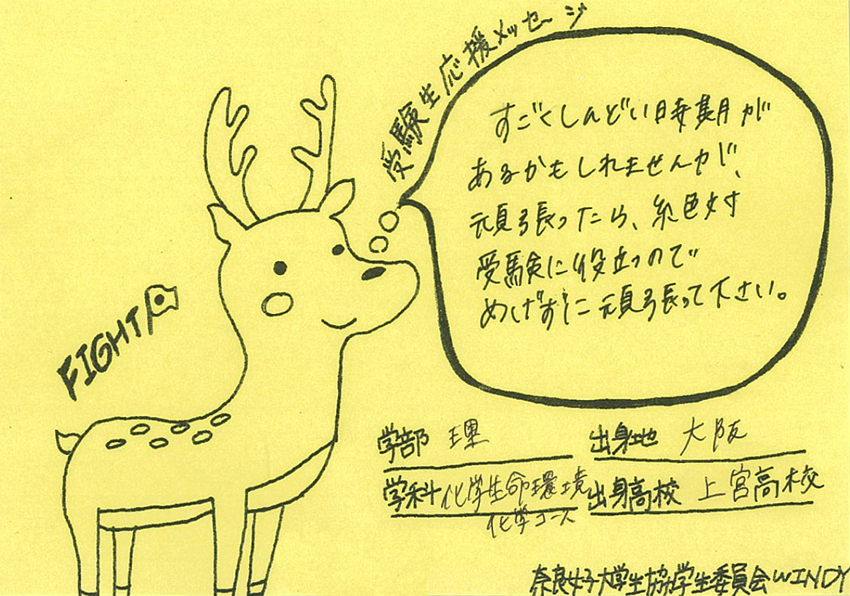 受験生応援メッセージ
すごくしんどい時期が
あるかもしれませんが、
頑張ったら、絶対
受験に役立つので
めげずに頑張って下さい。
FIGHT
学部 理
出身地 大阪
学科 化学生命環境
化学コース
出身高校 上宮高校
奈良女子大学生協学生委員会WINDY